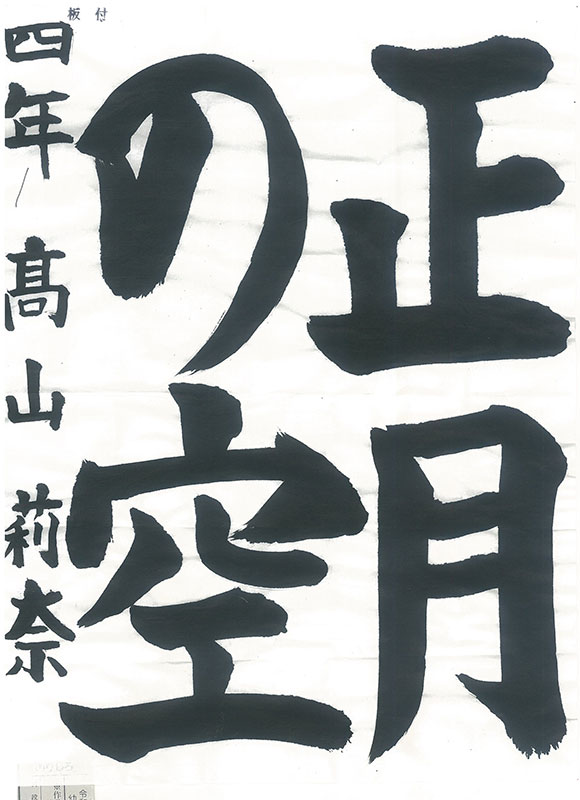 正月
の空
四年 髙山 莉奈
板付